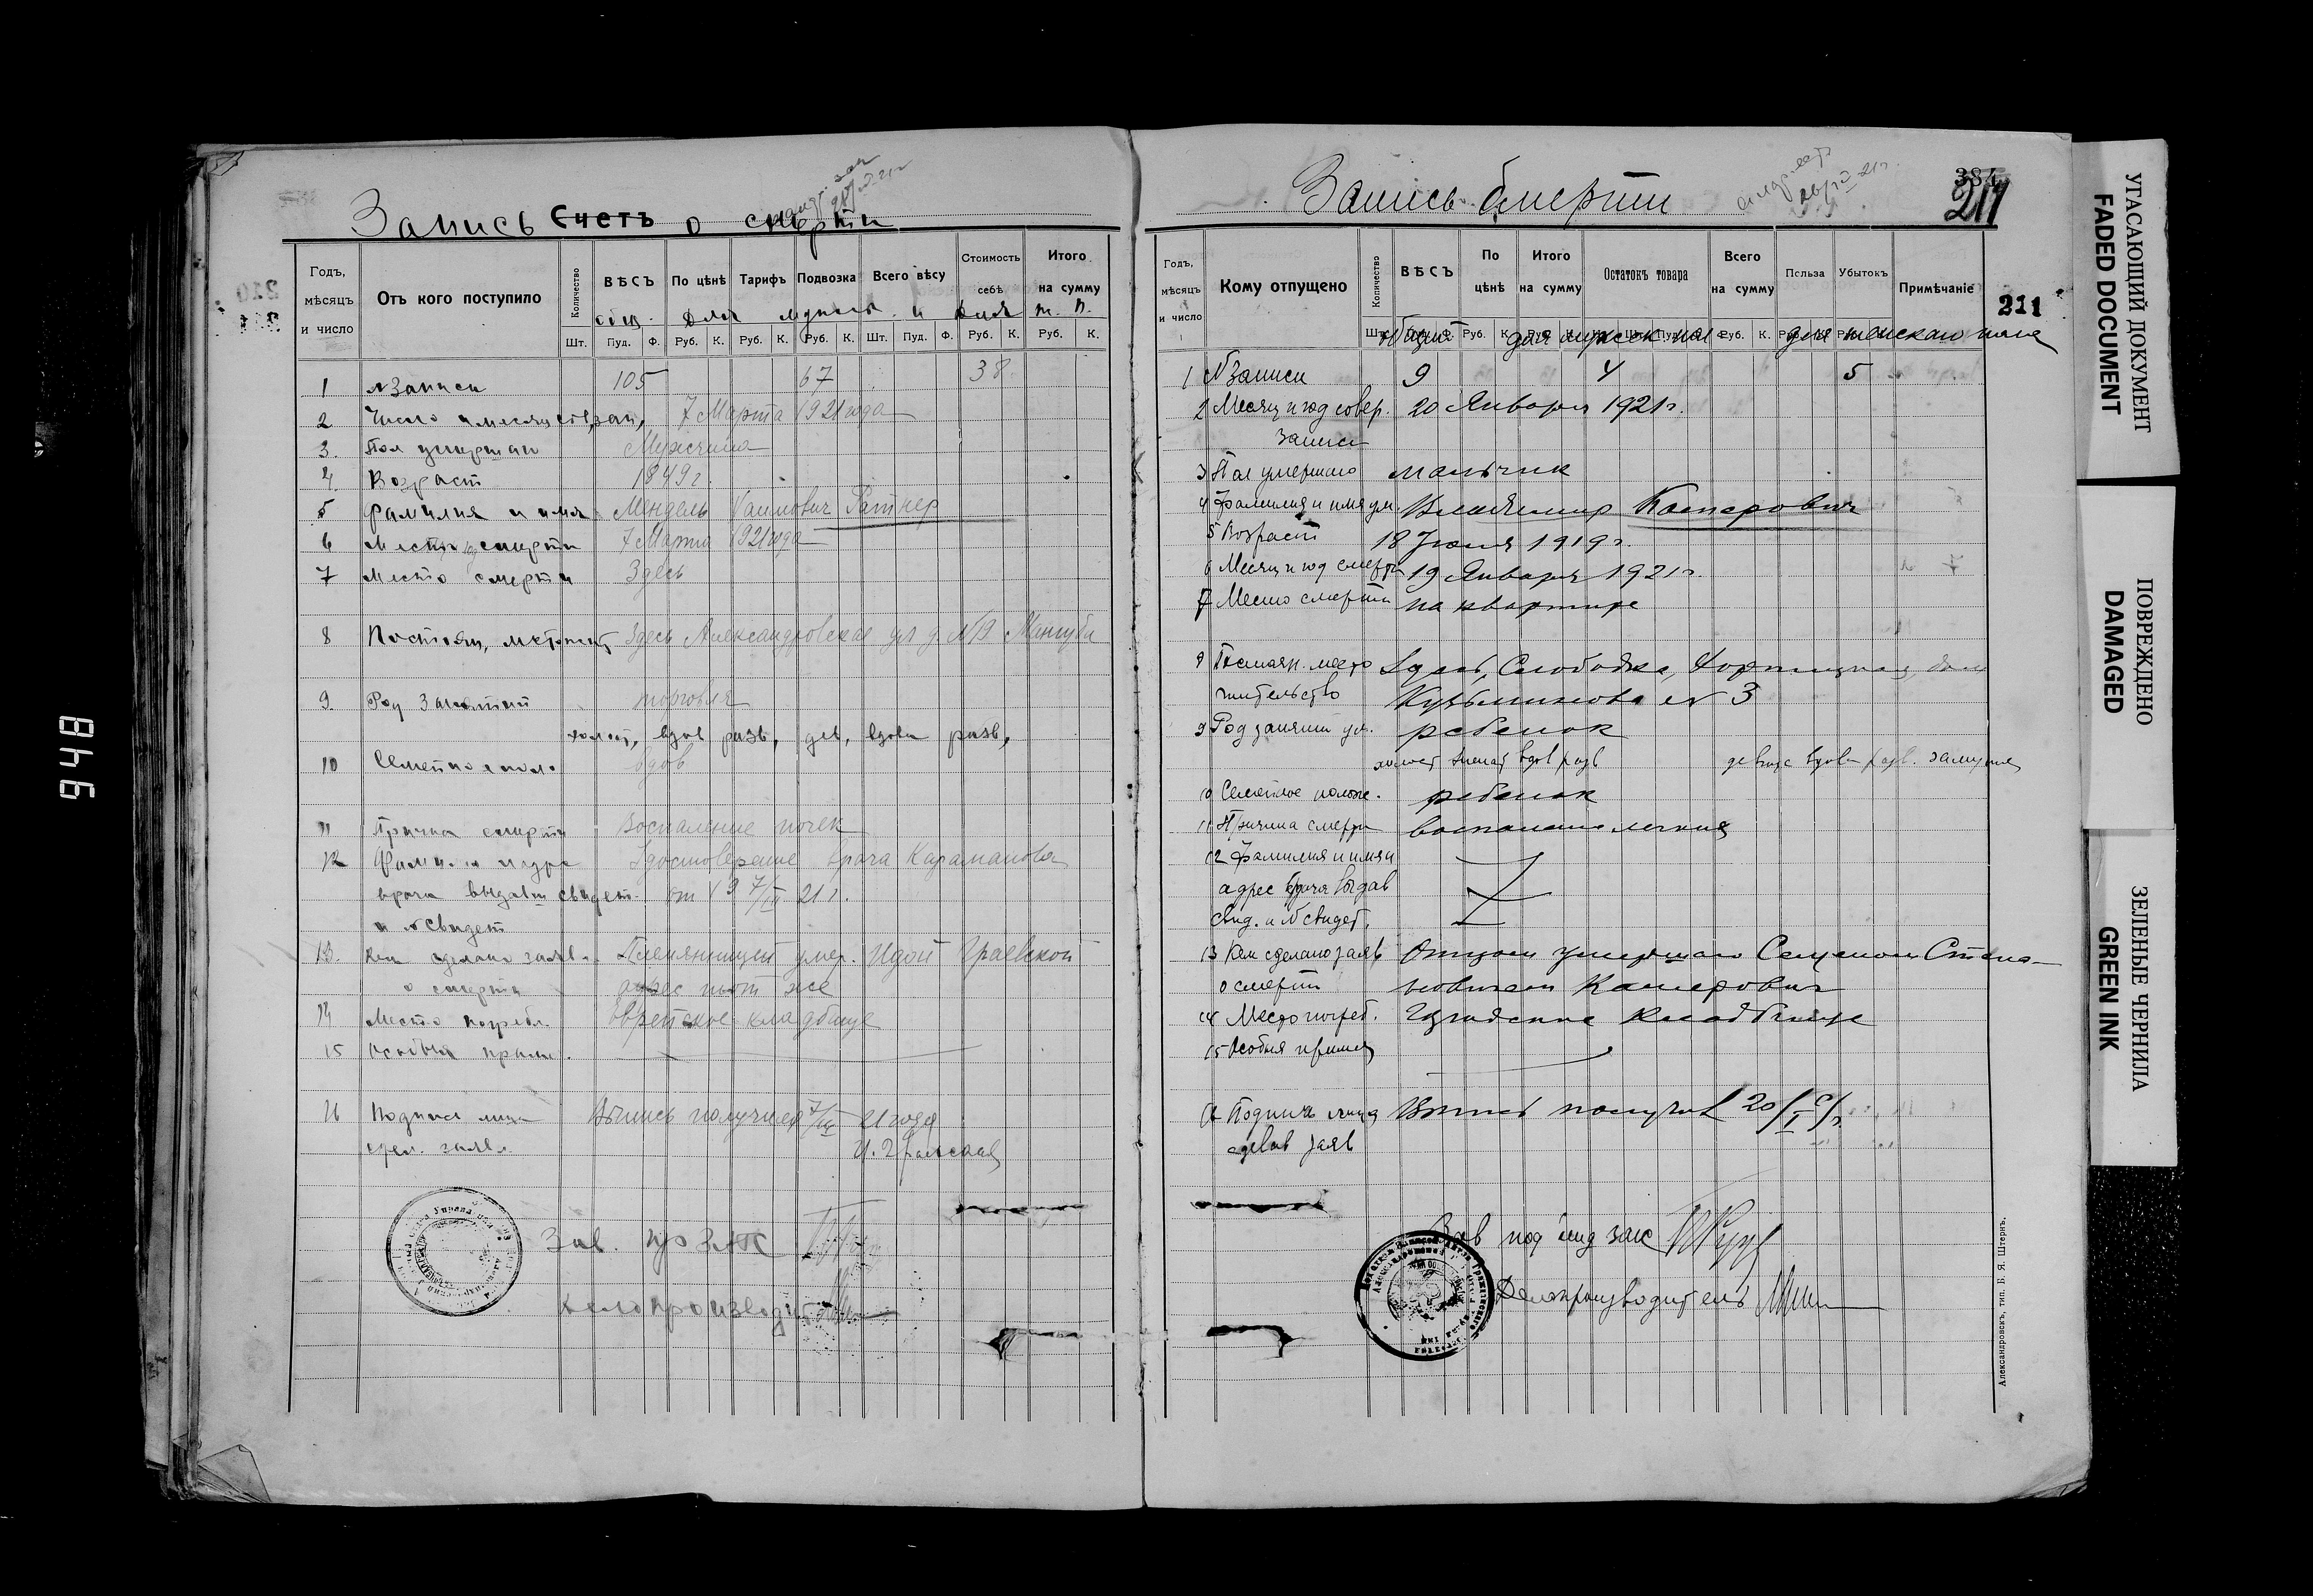 Запись Счетъ о смерти
Годъ, мѣсяцъ и число
Отъ кого поступило
Количество
ВѢСЪ
По цѣнѣ
Тарифъ
Подвозка
Всего вѣсу
Стоимость себѣ
Итого на сумму
общ. для мужск. и для ж. п.
Шт. Пуд. Ф. Руб. К. Руб. К. Руб. К. Шт. Пуд. Ф. Руб. К. Руб. К.
1 № Записи 105 67 38
2 Число и месяц 7 Марта 1921 года
3. Пол умерш Мужчина
4. Возраст 1849 г.
5 Фамилия и имя Мендель Хаимович Ратнер
6 смерти 7 Марта 1921 года
7 Место смерти Здесь
8 Постоян. Здесь Александровская ул д. №19
9. Род Занятий торговля
холост, вдов разв, дев, вдова разв,
10 Семейное пол. вдов
11 Причина смерти Воспаление почек
12 Фамилия Удостоверение врача Караманова
врача свидет. от 7/III 21 г.
и № свидет
13. Кем сделано заявл. Племянницей умер. Идой Граевской
о смерти адрес тот же
14 Место погребл. Еврейское кладбище
15 Особыя примеч.
16 Подпись лица Выпись получила 7/III 21 года
сдел. заявл.
Зав.
Делопроизводитель
Запись Смерти
384
211
211
Годъ, мѣсяцъ и число
Кому отпущено
Количество
ВѢСЪ
По цѣнѣ
Итого на сумму
Остатокъ товара
Всего на сумму
Польза
Убытокъ
Примѣчаніе
Общий для мужск. пол для женскаго пола
1 № Записи 9 4 5
2 Месяц и год совер. 20 Января 1921 г.
записи
3 Пол умершаго мальчик
4 Фамилия и имя ум. Владимир Каперович
5 Возраст 18 Июля 1919 г.
6 Месяц и год смерти 19 Января 1921 г.
7 Место смерти на квартире
8 Постоян. место Здесь, Слободка, Хортицкая, дом
жительство Кузьминова № 3
9 Род занятий ум. ребенок
холост женат вдов разв девица вдова разв. замужняя
10 Семейное полож. ребенок
11 Причина смерти воспаление легких
12 Фамилия и имя и
адрес врача выдав
свид. и № свидет.
13 Кем сделано заяв Отцом умершаго Семеном Степа-
о смерти новичем Каперович
14 Место погреб. Городское кладбище
15 Особыя примеч
16 Подпись лица Выпись получил 20/I
сделав заяв
Зав под отд зак
Делопроизводитель
Александровскъ, тип. Б. Я. Штернъ.
УГАСАЮЩИЙ ДОКУМЕНТ
FADED DOCUMENT
ПОВРЕЖДЕНО
DAMAGED
ЗЕЛЕНЫЕ ЧЕРНИЛА
GREEN INK
948